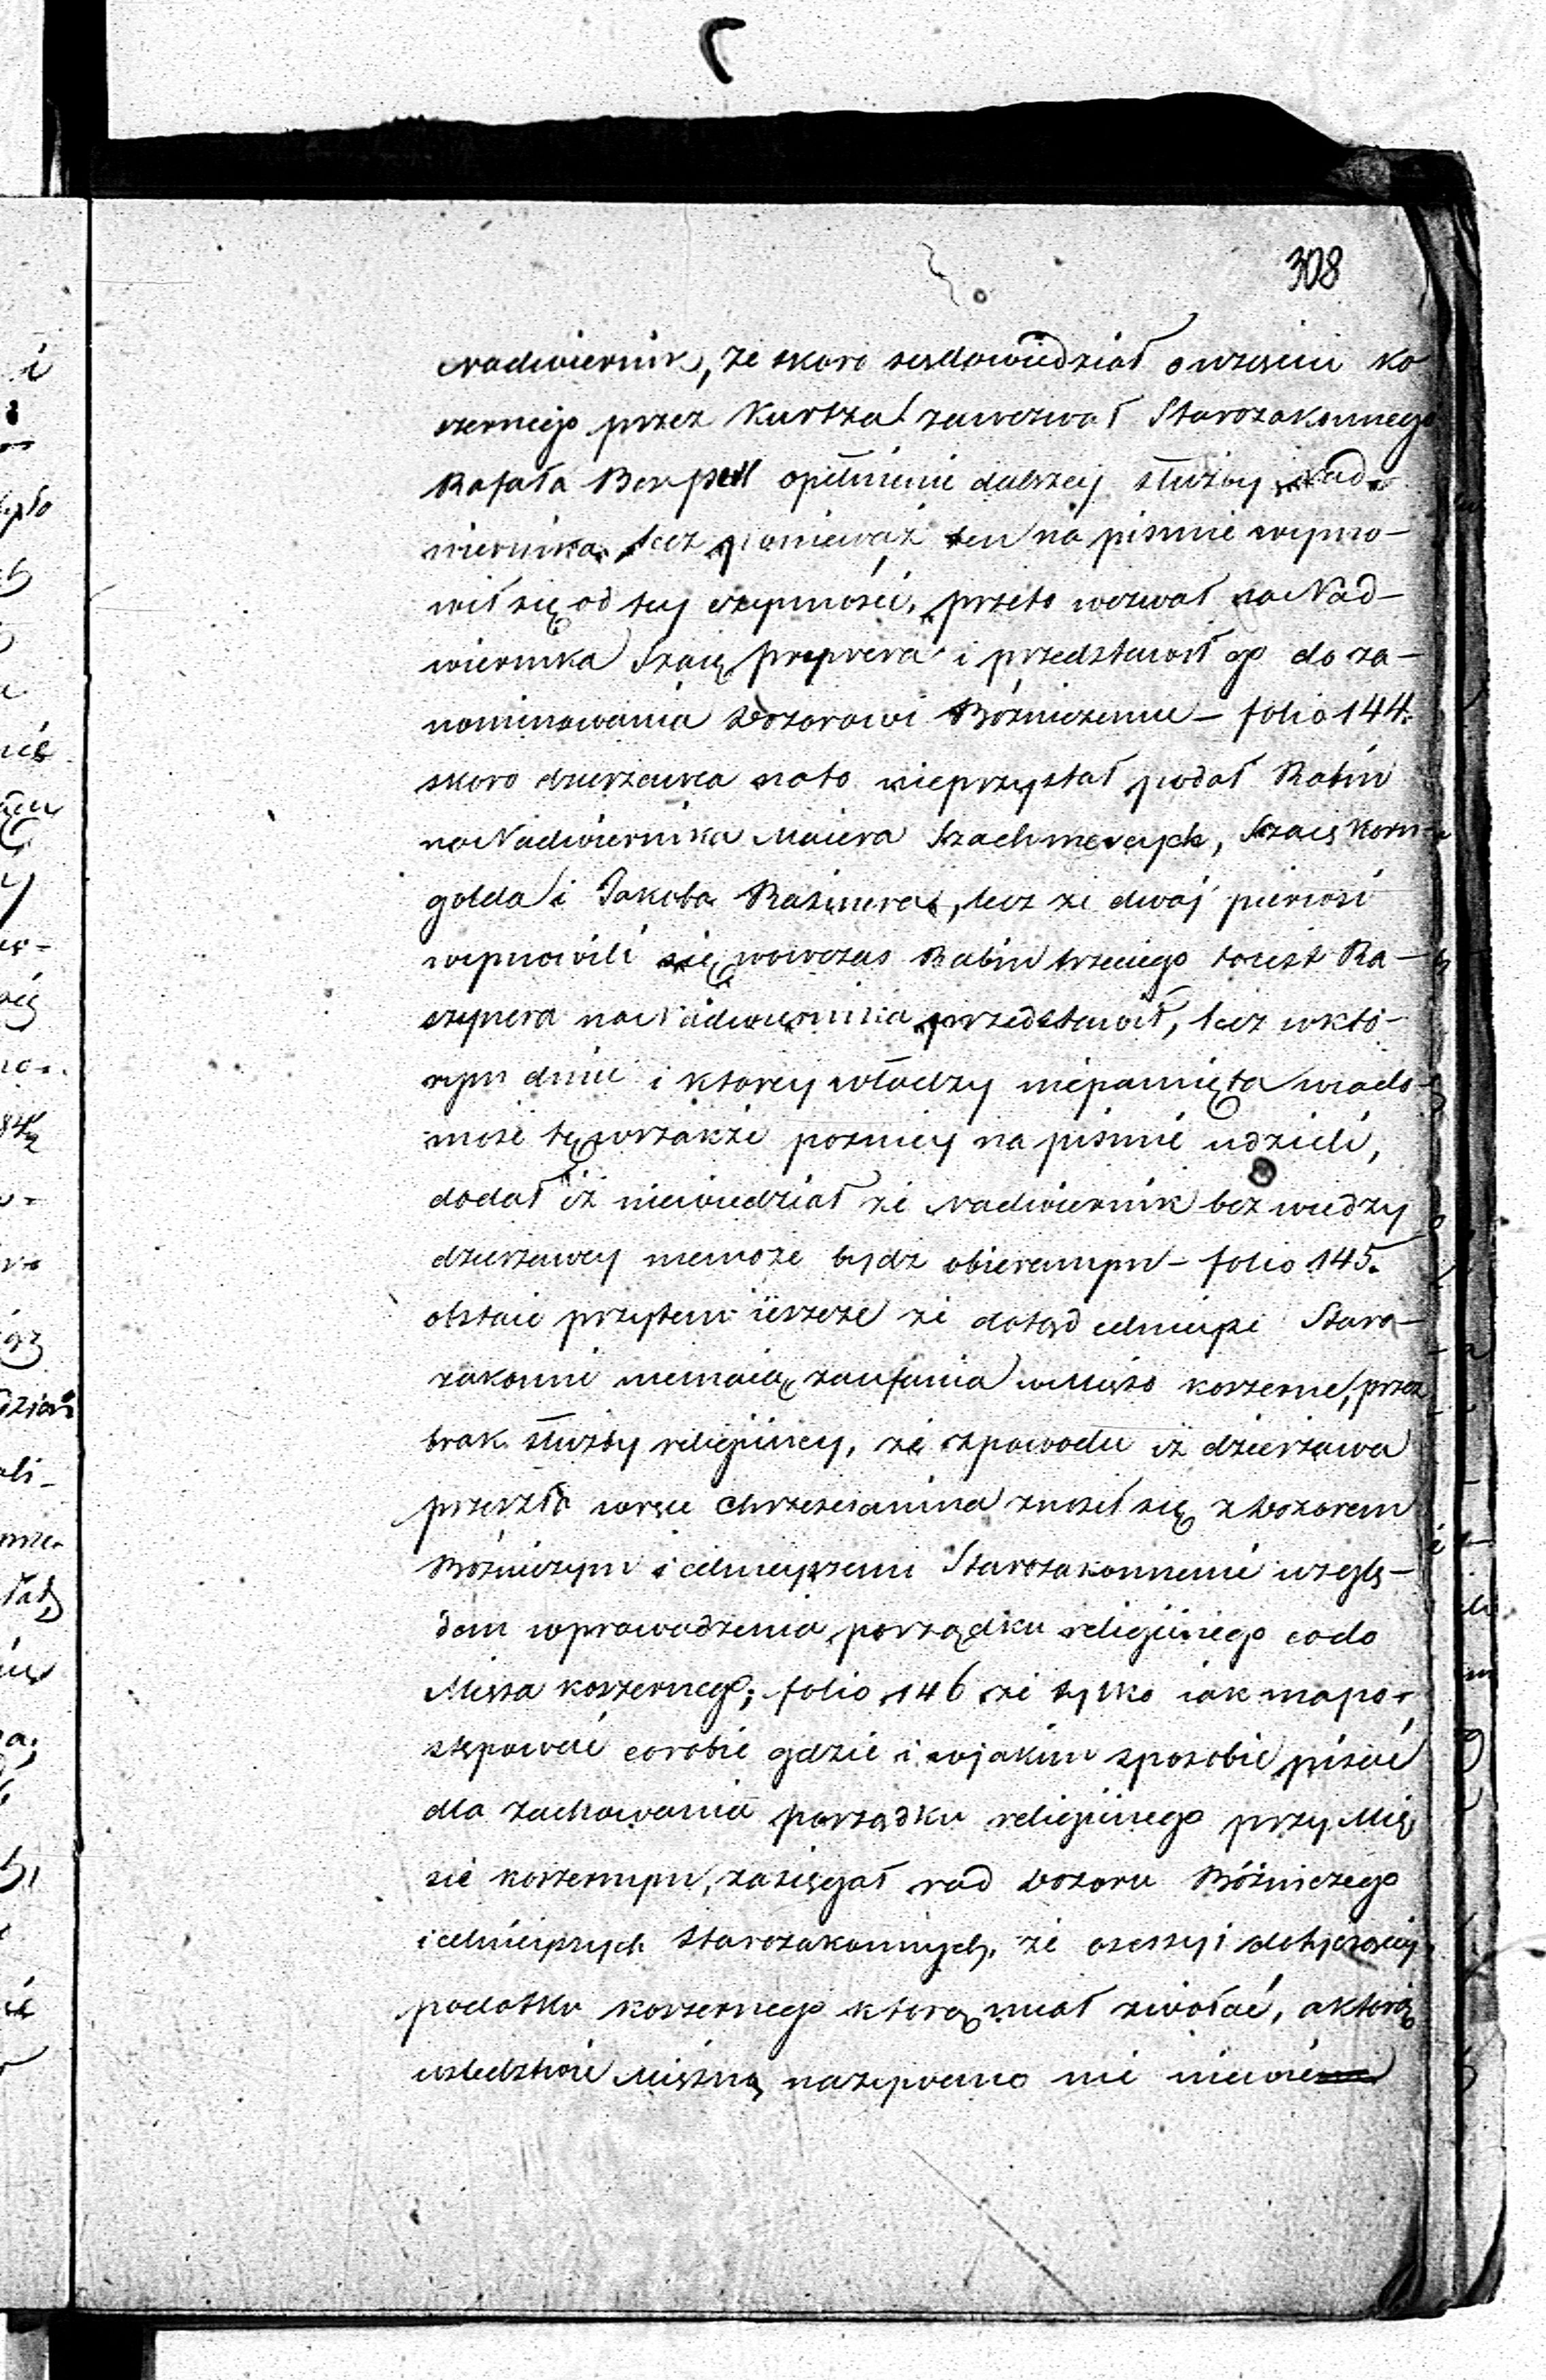 308
Nadwiernik, że skoro się dowiedział o wzięciu ko
szernego przez Kurtza zawezwał Starozakonnego
Rafała o pełnienie dalszey służby Nad-
wiernika lecz ponieważ ten na piśmie wymo-
wił się od tey czynności, przeto wezwał na Nad-
wiernika Szaię i przedstawił go do za-
nominowania Dozorowi Bóżniczemu – folio 144.
skoro dzierzawca na to nieprzystał podał Rabin
na Nadwiernika Maiera Szachmeycych, Szaię Korn-
golda i Jakoba, lecz że dwaj pierwsi
wymowili się wowczas Rabin trzeciego to iest Ra-
czynera na Nadwiernika przedstawił, lecz w któ-
rym dniu i ktorey władzy niepamięta wiado-
mość tę wszakże pozniey na piśmie udzieli,
dodał iż niewiedział że Nadwiernik bez wiedzy
dzierzawcy niemoże bydz obieranym – folio 145.
obstaie przytem ieszcze że dotąd celnieysi Staro-
zakonni niemaią zaufania w Mięso koszerne, przez
brak służby religiiney, że z powodu iż dzierzawa
przeszła w ręce Chrześcianina znosił się z Dozorem
Bóżniczym i celnieyszemi Starozakonnemi wzglę-
dem wprowadzenia porządku religiinego co do
Mięsa koszernego; folio 146 że tylko iak ma po-
stępować co robić gdzie i w jakim sposobie pisać
dla zachowania porządku religiinego przy Mię
sie koszernym, zasięgał rad Dozoru Bóżniczego
i celnieyszych Starozakonnych, że o sessyi dotyczącey
podatku koszernego którą miał zwołać, a którą
w śledztwie Mięsną nazywano nic niewie